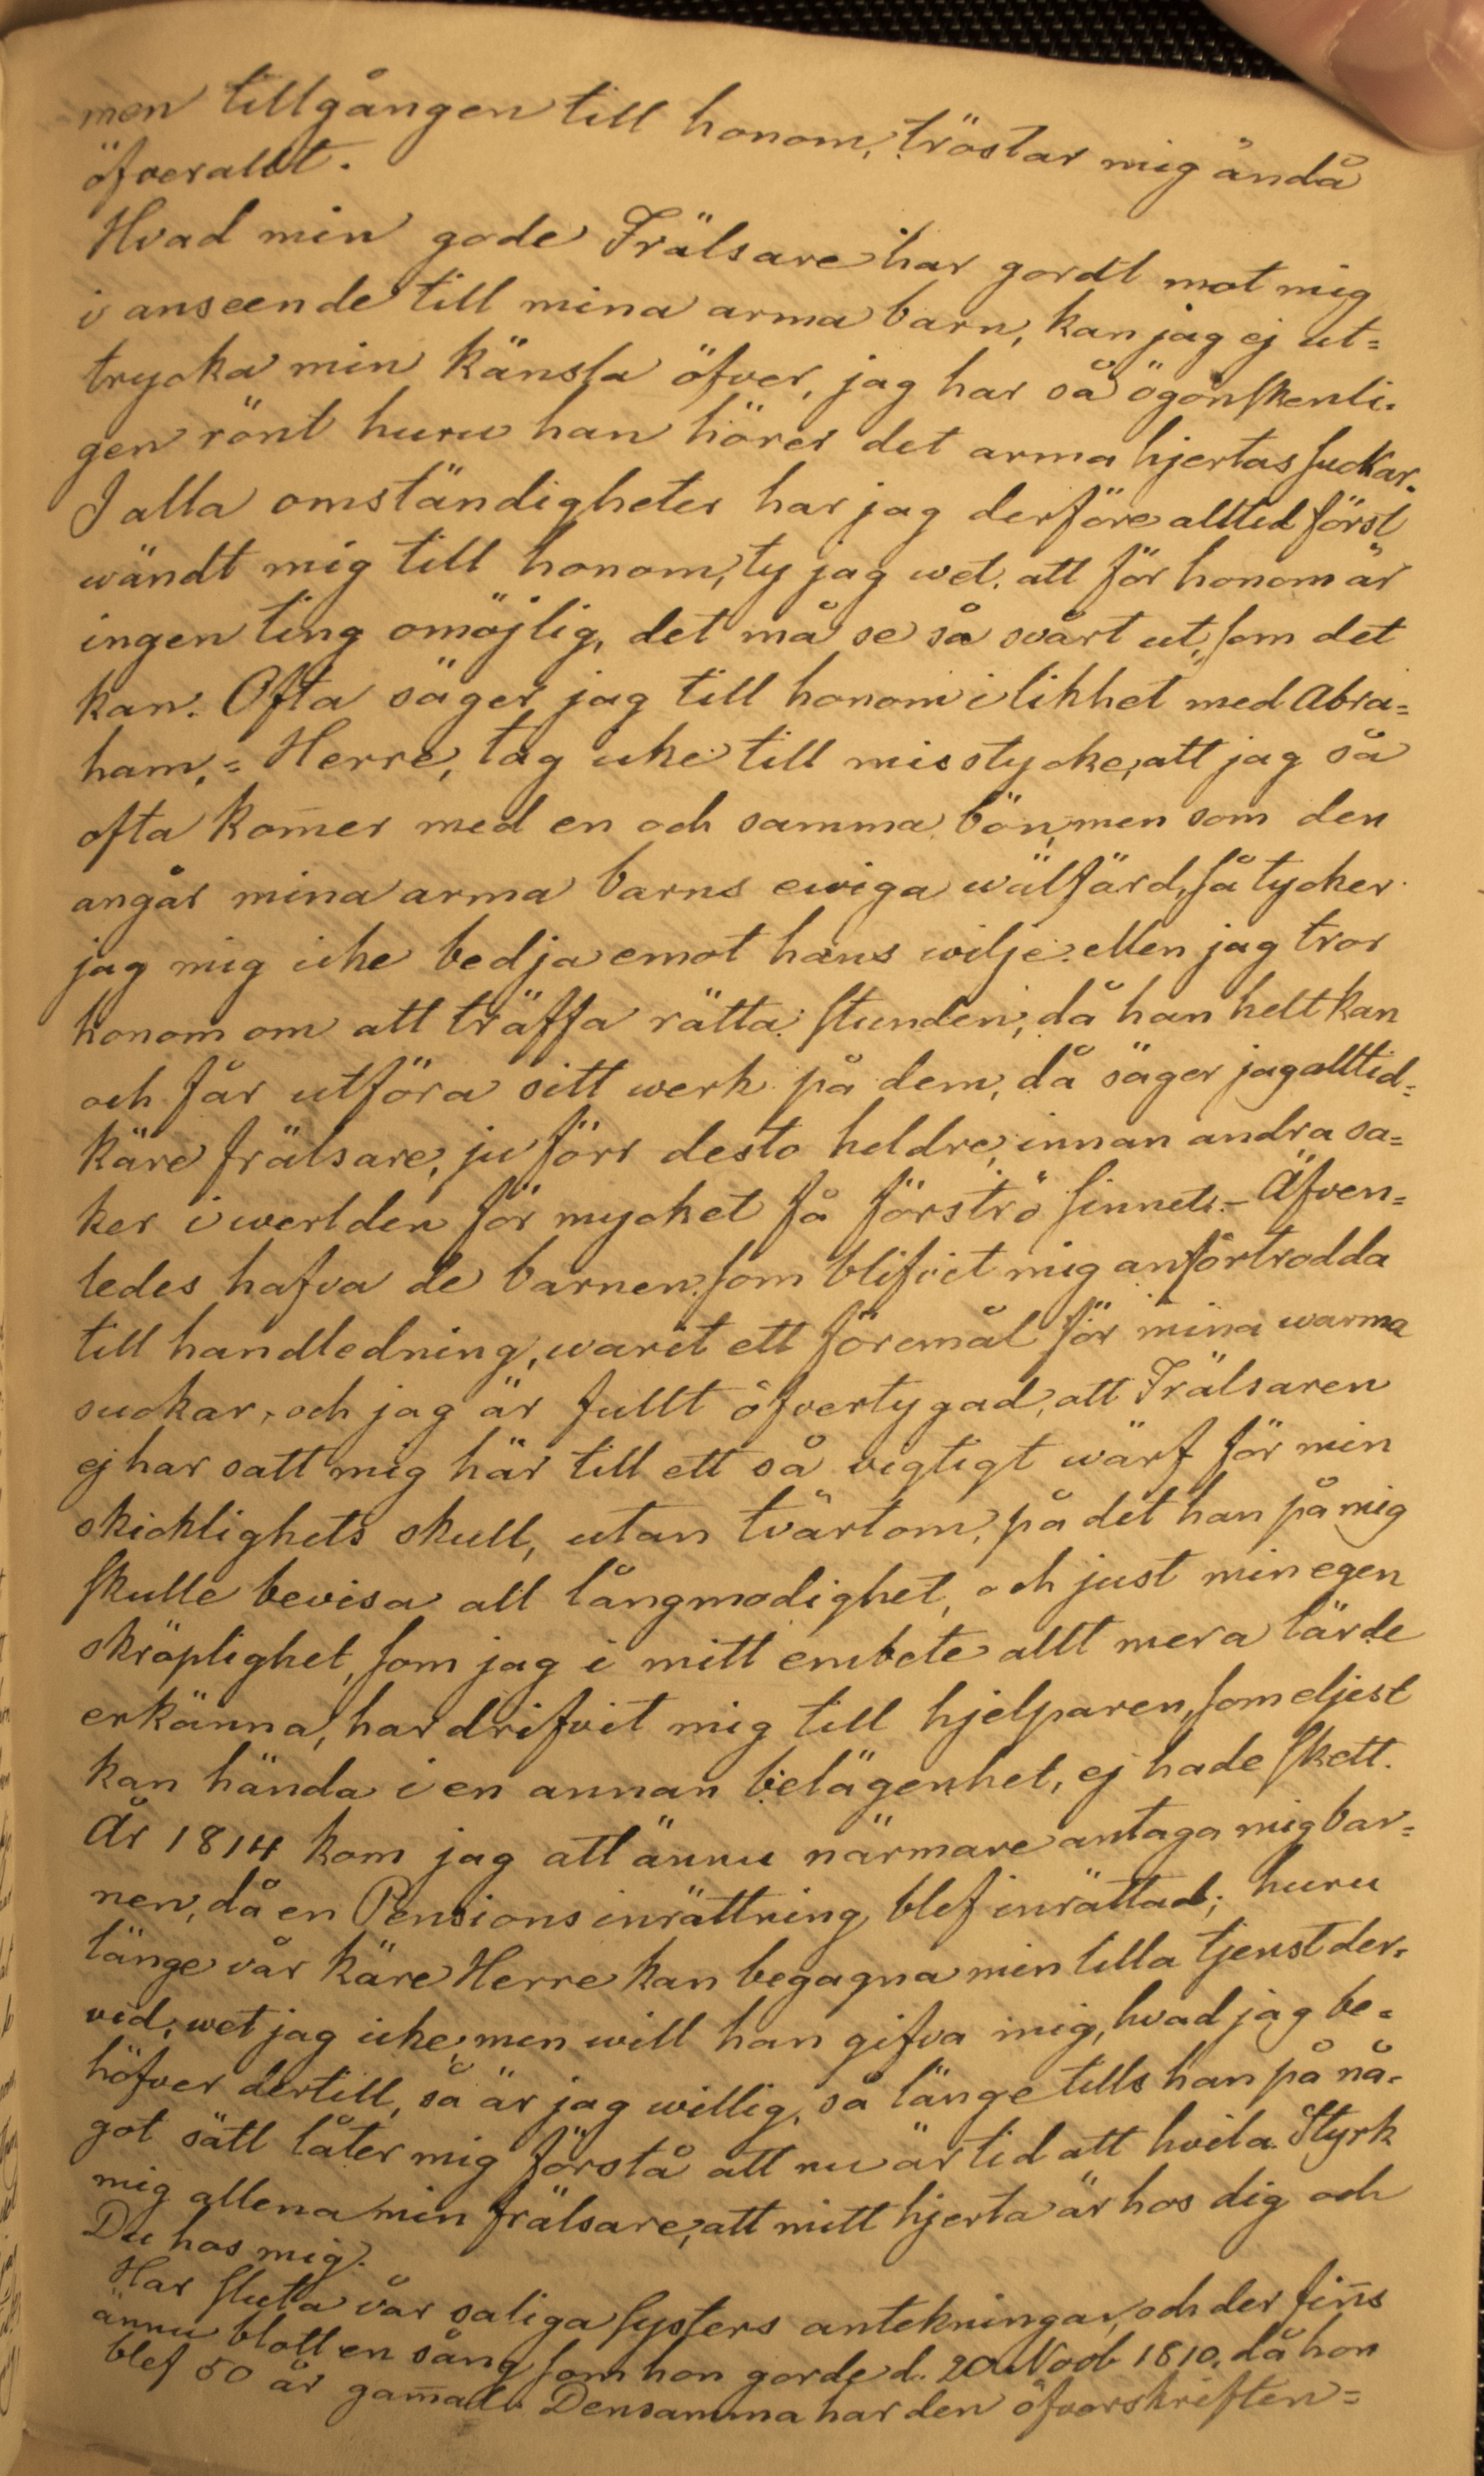 men tillgången till honom, tröstar mig ändå
öfverallt.
Hvad min gode Frälsare har gordt mot mig
i anseende till mina arma barn, kan jag ej ut=
trycka min känsla öfver, jag har så ögonskenli=
gen rönt huru han hörer det arma hjertas suckar.
I alla omständigheter har jag derföre alltid först
wändt mig till honom, ty jag wet, att för honom är
ingen ting omöjlig, det må se så svårt ut, som det
kan. Ofta säger jag till honom i likhet med Abra=
ham, = Herre, tag icke till misstycke, att jag så
ofta kom̅er med en och samma bön, men som den
angår mina arma barns eviga wälfärd, så tycker
jag mig icke bedja emot hans wilje. Men jag tror
honom om att träffa rätta stunden, då han helt kan
och får utföra sitt werk på dem, då säger jag alltid=
käre frälsare, ju förr desto heldre, innan andra sa=
ker i werlden för mycket få förströ sinnet. - Äfven=
ledes hafva de barnen som blifvit mig anförtrodda
till handledning, warit ett föremål för mina warma
suckar, och jag är fullt öfvertygad, att Frälsaren
ej har satt mig här till ett så vigtigt wärf för min
skicklighets skull, utan tvärtom, på det han på mig
skulle bevisa all långmodighet, och just min egen
skröplighet, som jag i mitt embete allt mera lärde
erkänna, har drifvit mig till hjelparen, som eljest
kan hända i en annan belägenhet, ej hade skett.
År 1814 kom jag att ännu närmare antaga mig bar=
nen, då en Pensionsinrättning blef inrättad; huru
länge vår käre Herre kan begagna min lilla tjenst der=
vid, wet jag icke, men will han gifva mig, hvad jag be=
höfver dertill, så är jag willig, så länge tills han på nå=
got sätt låter mig förstå att nu är tid att hvila. Styrk
mig allena min frälsare, att mitt hjerta är hos dig och
Du hos mig.
Har sluta vår saliga Systers antekningar, och der fin̅s
ännu blott en sång som hon gorde d. 20 Novb 1810, då hon
blef 50 år gam̅al. Densamma har den öfverskriften=